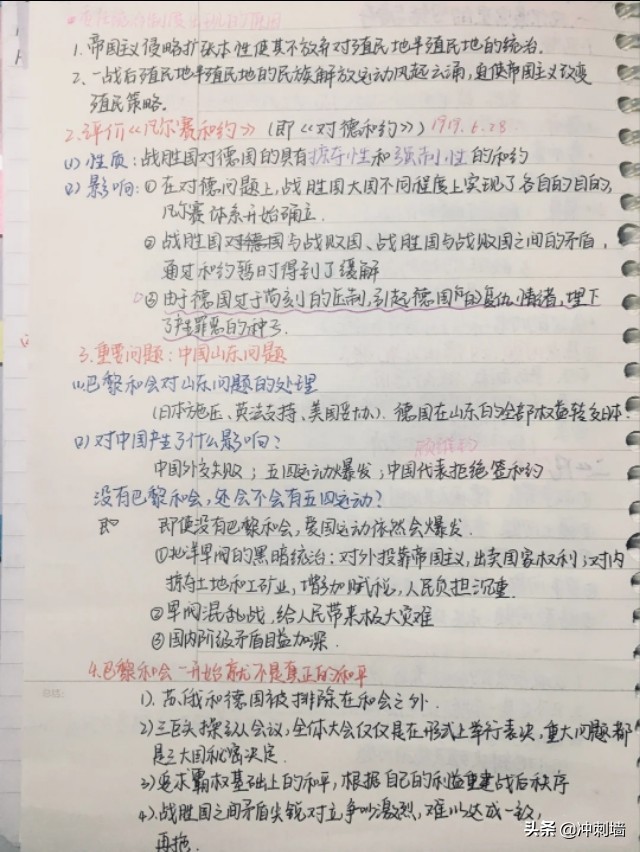 1. 帝国主义侵略扩张本性使其不放弃对殖民地半殖民地的统治.
2. 一战后殖民地半殖民地的民族解放运动风起云涌,迫使帝国主义改变
殖民策略.
2.评价《凡尔赛和约》(即《对德和约》) 1919.6.28.
(1) 性质:战胜国对德国的具有掠夺性和强制性的和约
(2) 影响:① 在对德问题上,战胜国大国不同程度上实现了各自的目的,
凡尔赛体系开始确立.
② 战胜国对德国与战败国、战胜国与战败国之间的矛盾,
通过和约暂时得到了缓解
③ 由于德国过于苛刻的压制,引起德国的复仇情绪,埋下
了罪恶的种子.
3.重要问题:中国山东问题
(1)巴黎和会对山东问题的处理
(日本施压、英法支持、美国妥协). 德国在山东的全部权益转交日本.
顾维钧
(2)对中国产生了什么影响?
中国外交失败;五四运动爆发;中国代表拒绝签和约
没有巴黎和会,还会不会有五四运动?
即 即使没有巴黎和会,爱国运动依然会爆发.
①北洋军阀的黑暗统治:对外投靠帝国主义,出卖国家权利;对内
掠夺土地和工矿业,增加赋税,人民负担沉重.
②军阀混乱战,给人民带来极大灾难
③国内阶级矛盾日益加深.
4.巴黎和会一开始就不是真正的和平
1). 苏俄和德国被排除在和会之外.
2)三巨头操纵会议,全体大会仅仅是在形式上举行表决,重大问题都
是三大国秘密决定.
3)追求霸权基础上的和平,根据自己的利益重建战后秩序
4).战胜国之间矛盾尖锐对立争吵激烈,难以达成一致,
再拖.
头条 @冲刺墙